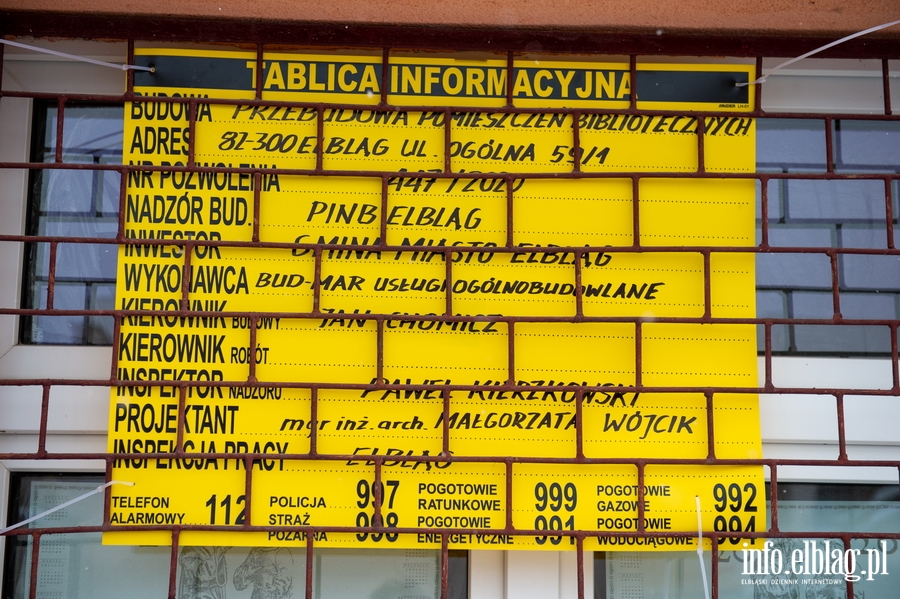 TABLICA INFORMACYJNA
BUDOWA PRZEBUDOWA POMIESZCZEŃ BIBLIOTECZNYCH
ADRES 82-300 ELBLĄG UL. OGÓLNA 59/1
NR POZWOLENIA 447/2020
NADZÓR BUD. PINB ELBLĄG
INWESTOR GMINA MIASTO ELBLĄG
WYKONAWCA BUD-MAR USŁUGI OGÓLNOBUDOWLANE
KIEROWNIK BUDOWY JAN CHOMICZ
KIEROWNIK ROBÓT
INSPEKTOR NADZORU PAWEŁ KIERZKOWSKI
PROJEKTANT mgr inż. arch. MAŁGORZATA WÓJCIK
INSPEKCJA PRACY ELBLĄG
TELEFON ALARMOWY 112
POLICJA 997
STRAŻ POŻARNA 998
POGOTOWIE RATUNKOWE 999
POGOTOWIE ENERGETYCZNE 991
POGOTOWIE GAZOWE 992
POGOTOWIE WODOCIĄGOWE 994
info.elblag.pl
ELBLĄSKI DZIENNIK INTERNETOWY